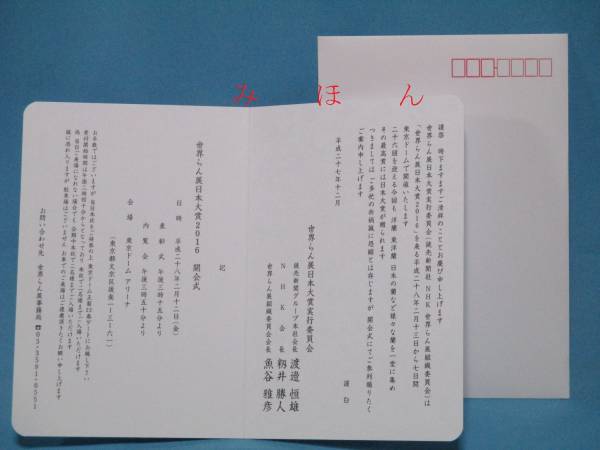 みほん
謹啓 時下ますますご清祥のこととお慶び申し上げます
世界らん展日本大賞実行委員会(読売新聞社 NHK 世界らん展組織委員会)は
「世界らん展日本大賞2016」を来る平成二十八年二月十三日から七日間
東京ドームで開催いたします
二十六回を迎える今回も 洋蘭 東洋蘭 日本の蘭など様々な蘭を一堂に集め
その最高賞には日本大賞が贈られます
つきましては ご多忙の折 誠に恐縮とは存じますが 開会式にてご参列賜りたく
ご案内申し上げます
謹白
平成二十七年十二月
世界らん展日本大賞実行委員会
読売新聞グループ本社会長 渡邉 恒雄
NHK会長 籾井 勝人
世界らん展組織委員会会長 魚谷 雅彦
記
世界らん展日本大賞2016 開会式
日時 平成二十八年二月十二日(金)
表彰式 午後三時五十分より
内覧会 午後三時五十分より
会場 東京ドーム アリーナ
(東京都文京区後楽一-三-六一)
お手数ではございますが 当日本状をご持参の上 東京ドーム正面22番ゲートにお越し下さい
お問い合わせ先 世界らん展事務局 ☎03-3591-6551